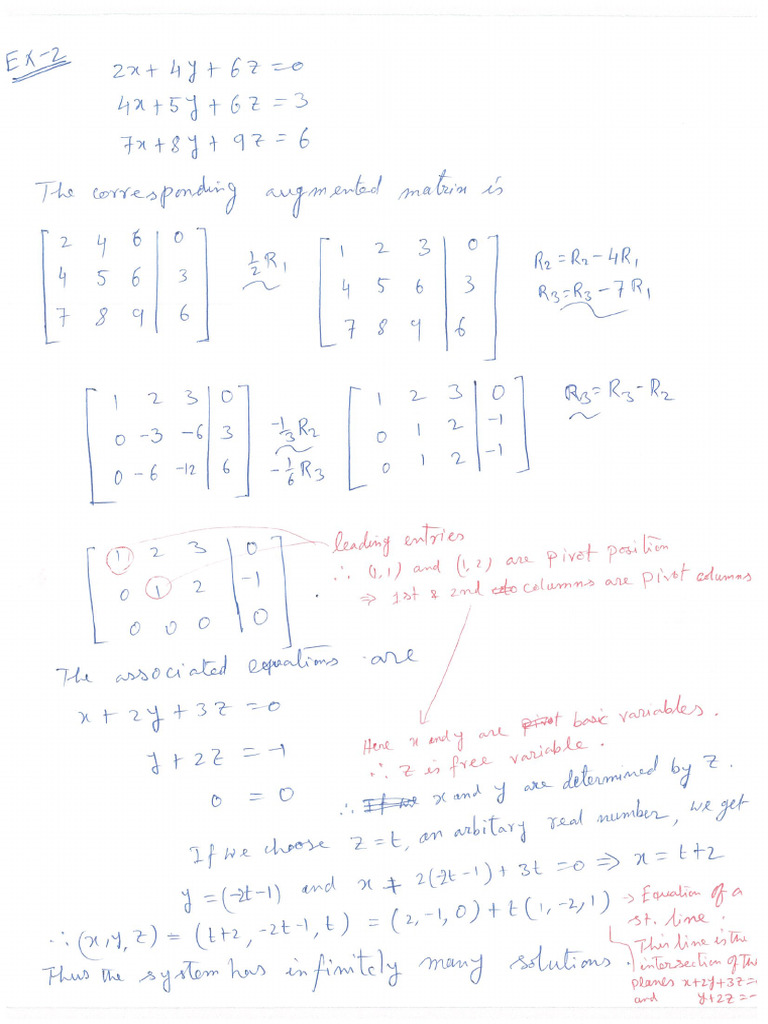 EX-2
2x + 4y + 6z = 0
4x + 5y + 6z = 3
7x + 8y + 9z = 6
The corresponding augmented matrix is
[2 4 6 | 0] ½R₁ [1 2 3 | 0] R₂ = R₂ - 4R₁
[4 5 6 | 3] [4 5 6 | 3] R₃ = R₃ - 7R₁
[7 8 9 | 6] [7 8 9 | 6]
[1 2 3 | 0] [1 2 3 | 0] R₃ = R₃ - R₂
[0 -3 -6 | 3] -⅓R₂ [0 1 2 | -1]
[0 -6 -12 | 6] -⅙R₃ [0 1 2 | -1]
[1 2 3 | 0] leading entries
[0 1 2 | -1] ∴ (1,1) and (1,2) are pivot position
[0 0 0 | 0] ⇒ 1st & 2nd columns are pivot columns
The associated equations are
x + 2y + 3z = 0
y + 2z = -1
0 = 0
Here x and y are pivot basic variables.
∴ z is free variable.
∴ If we x and y are determined by z.
If we choose z = t, an arbitary real number, we get
y = (-2t-1) and x + 2(-2t-1) + 3t = 0 ⇒ x = t+2
∴ (x,y,z) = (t+2, -2t-1, t) = (2,-1,0) + t(1,-2,1) → Equation of a
st. line.
Thus the system has infinitely many solutions.
This line is the
intersection of the
planes x+2y+3z=
and y+2z=-